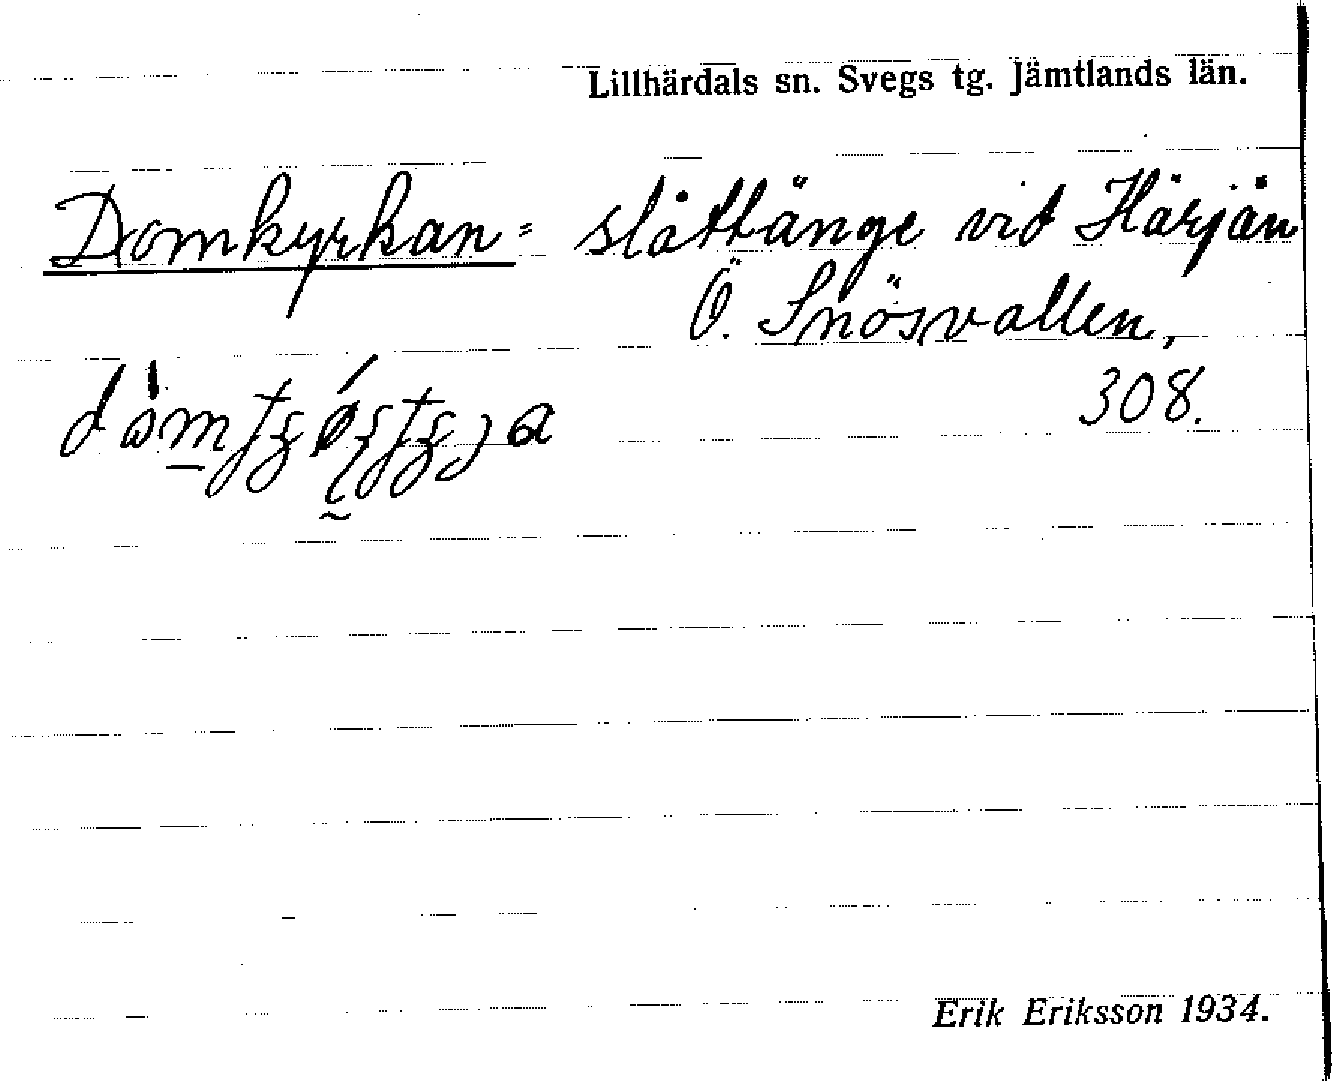 Lillhärdals sn. Svegs tg. Jämtlands län.
Domkyrkan = slåttänge vid Härjån
Ö. Snösvallen,
308.
Erik Eriksson 1934.